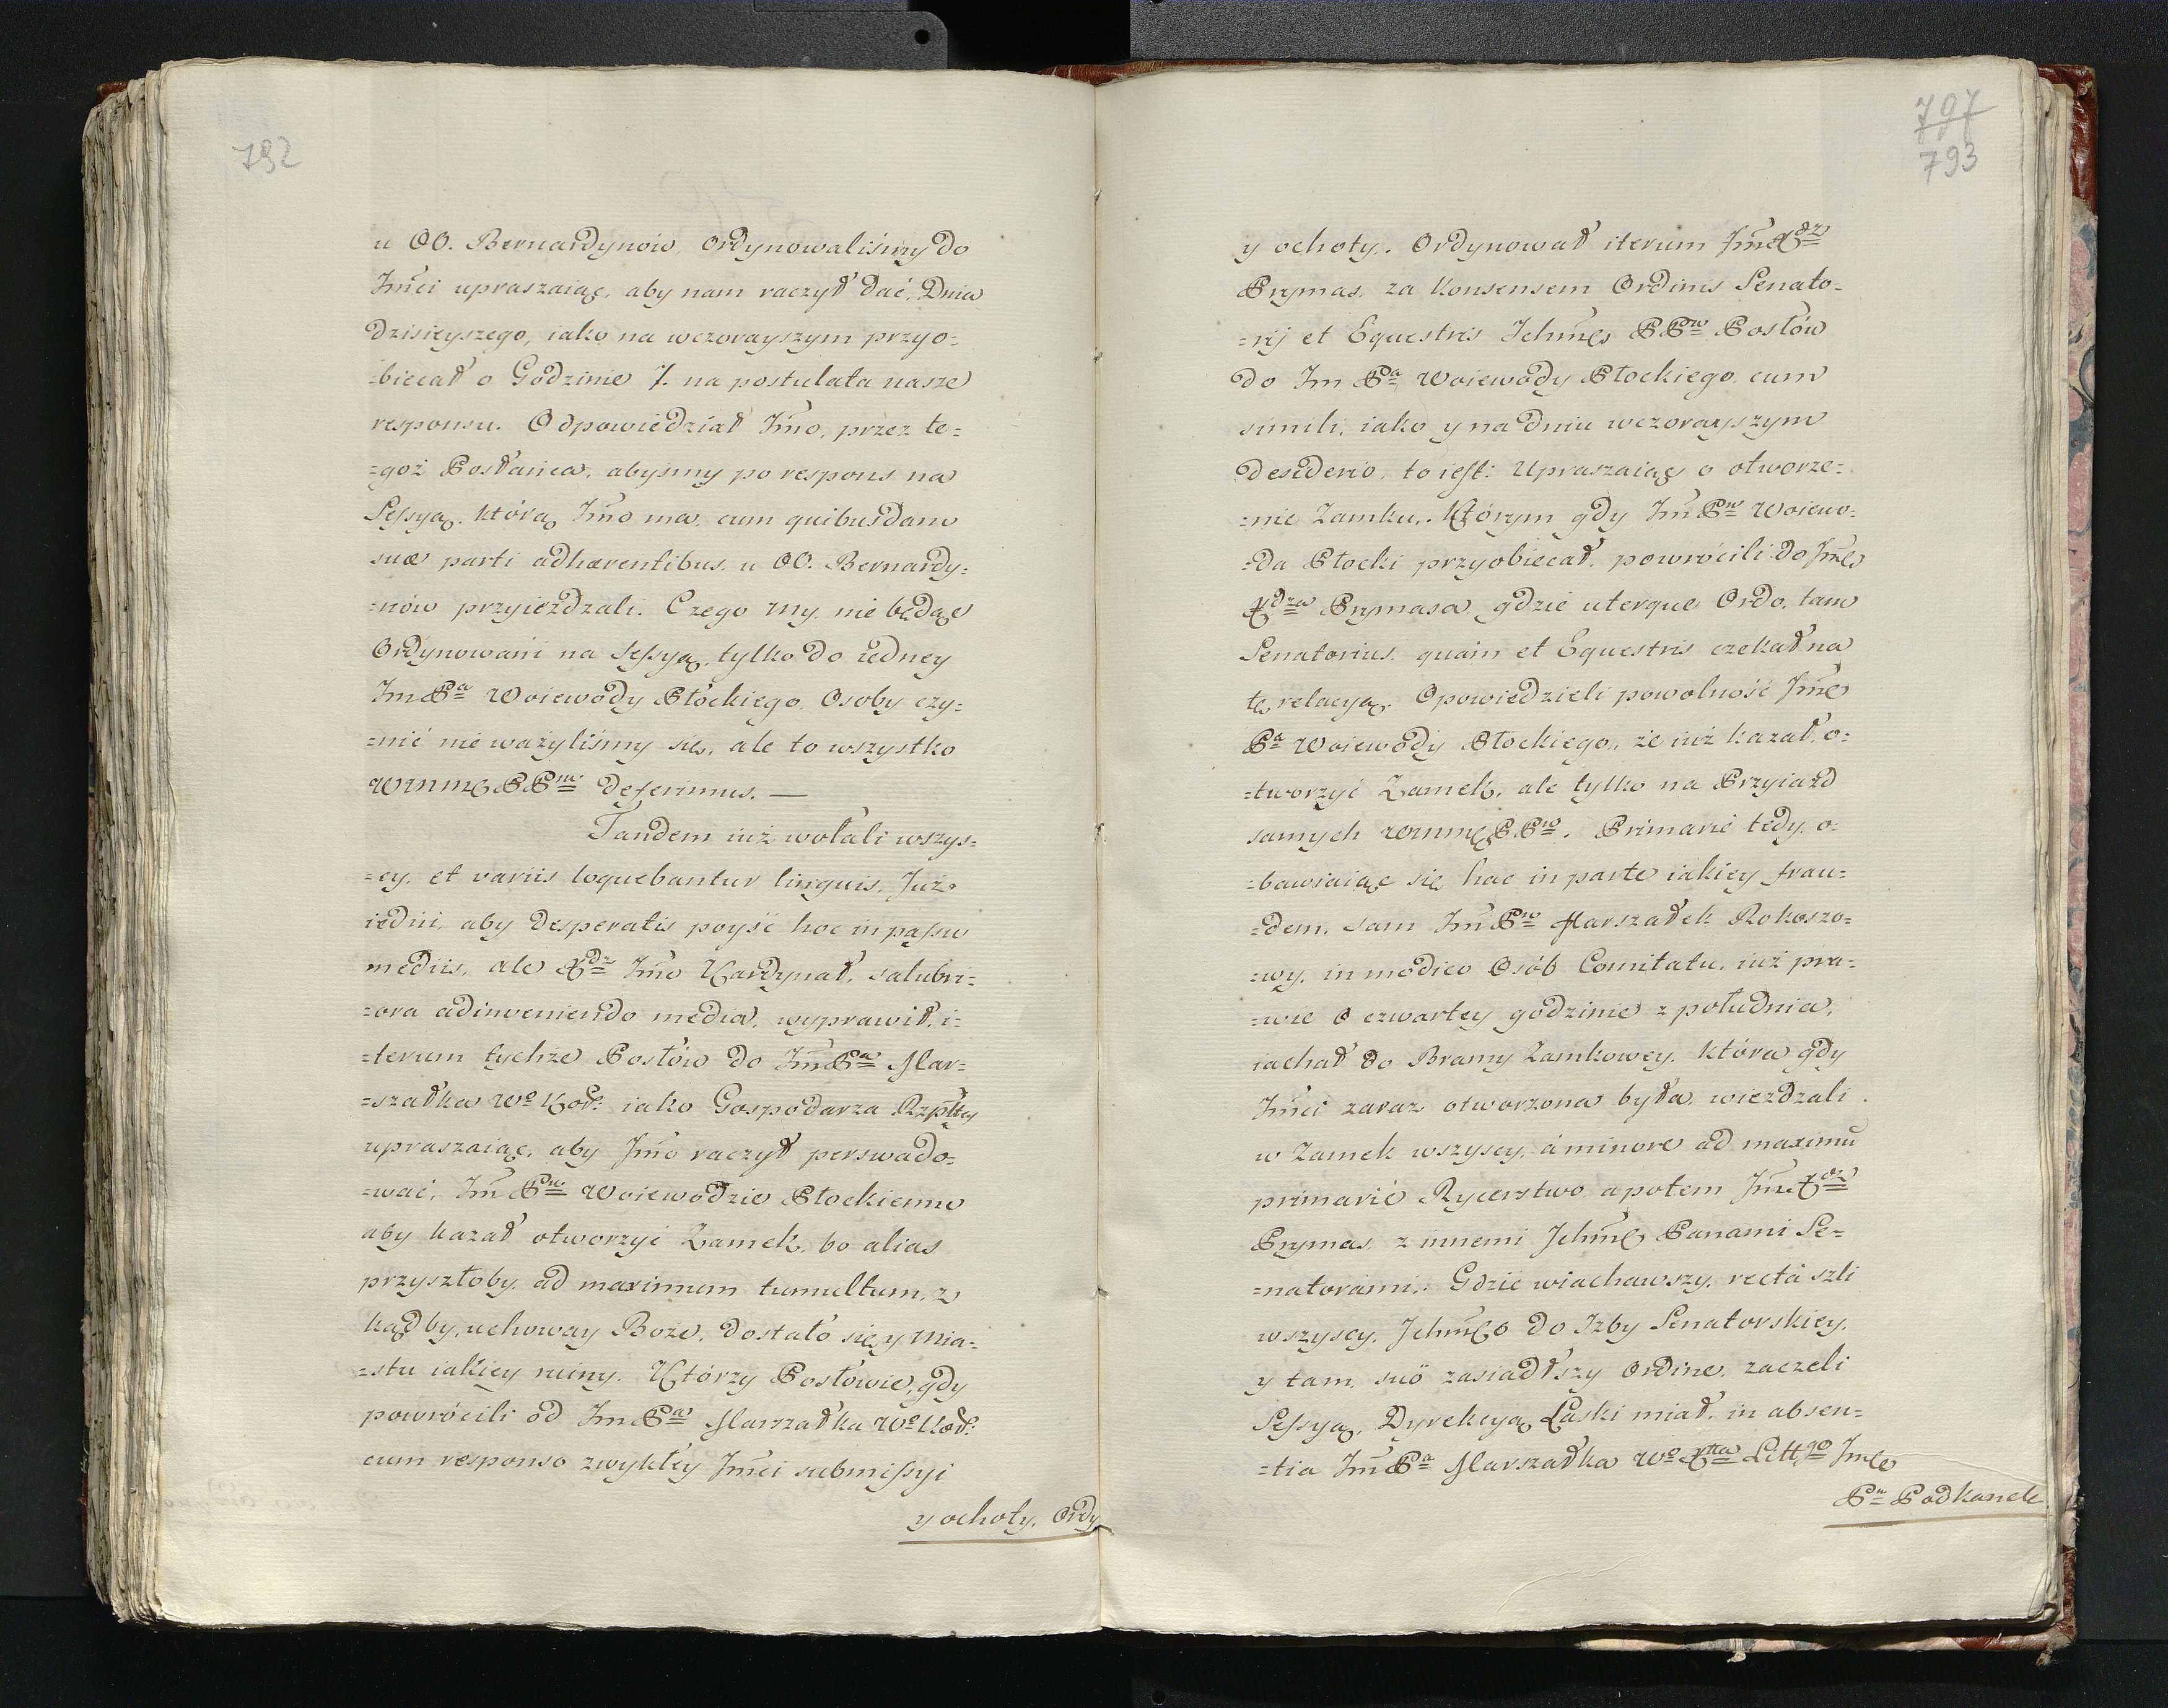 792
u OO. Bernardynow, Ordynowaliśmy do
Jmci upraszaiąc, aby nam raczył dać, Dnia
dzisieyszego, iako na wczorayszym przyo=
=biecał o Godzinie 7. na postulata nasze
responsu. Odpowiedział Jmo, przez te=
=goż Posłańca, abyśmy po respons na
Sessyą, którą Jmo ma, cum quibusdam
suæ parti adhærentibus, u OO. Bernardy=
=nów przyieżdżali. Czego my, nie będąc
Ordynowani na Sessyą, tylko do iedney
Jm Pa Woiewody Płockiego, Osoby czy=
=nić nie ważyliśmy się, ale to wszystko
WMMć PPm deferimus. —
Tandem iuż wołali wszys=
=cy, et variis loquebantur linguis. Już
iedni, aby desperatis poyść hoc in passu
mediis, ale Xdz Jmo Kardynał, salubri=
=ora adinveniendo media, wyprawił, i=
=terum tychże Posłów do Jm Pa Mar=
=szałka Wo Kor: iako Gospodarza Rzpltey
upraszaiąc, aby Jmo raczył perswado=
=wać, Jm Pw Woiewodzie Płockiemu
aby kazał otworzyć Zamek, bo alias
przyszłoby, ad maximum tumultum, z
kądby, uchoway Boże, dostało się y Mia=
=stu iakiey ruiny. Którzy Posłowie, gdy
powrócili od Jm Pa Marszałka Wo Kor:
cum responso zwykłey Jmci submissyi
y ochoty, Ordy
797
793
y ochoty,. Ordynował iterum Jmć Xdz
Prymas, za Konsensem Ordinis Senato=
=rij et Equestris Ichmć PPw Posłów
do Jm Pa Woiewody Płockiego, cum
simili, iako y na dniu wczorayszym
desiderio, to iest: Upraszaiąc o otworze=
=nie Zamku,. Którym gdy Jm Pw Woiewo=
=da Płocki przyobiecał, powrócili do Jmć
Xdza Prymasa, gdzie uterque Ordo, tam
Senatorius, quam et Equestris czekał na
tę relacyą. Opowiedzieli powolność Jmć
Pa Woiewody Płockiego, że iuż kazał, o=
=tworzyć Zamek, ale tylko na Przyiazd
samych WMMć PPw. Primarié tedy, o=
=bawiaiąc się hac in parte iakiey frau=
=dem, sam Jm Pw Marszałek Rokoszo=
=wy, in modico Osób Comitatu, iuż pra=
=wie o czwartey godzinie z południa,
iachał do Bramy Zamkowey, która gdy
Jmci zaraz otworzona była, wieżdżali
w Zamek wszyscy, á minore ad maximū
primarié Rycerstwo, a potem Jmć Xdz
Prymas, z innemi Jchmć Panami Se=
=natorami,. Gdzie wiachawszy, rectà szli
wszyscy, Jchmć do Izby Senatorskiey,
y tam, suô zasiadłszy Ordine, zaczeli
Sessyą, Dyrekcyą Laski miał, in absen=
=tia Jm Pa Marszałka Wo Xtta Litt,go Jmć
Pn Podkancle